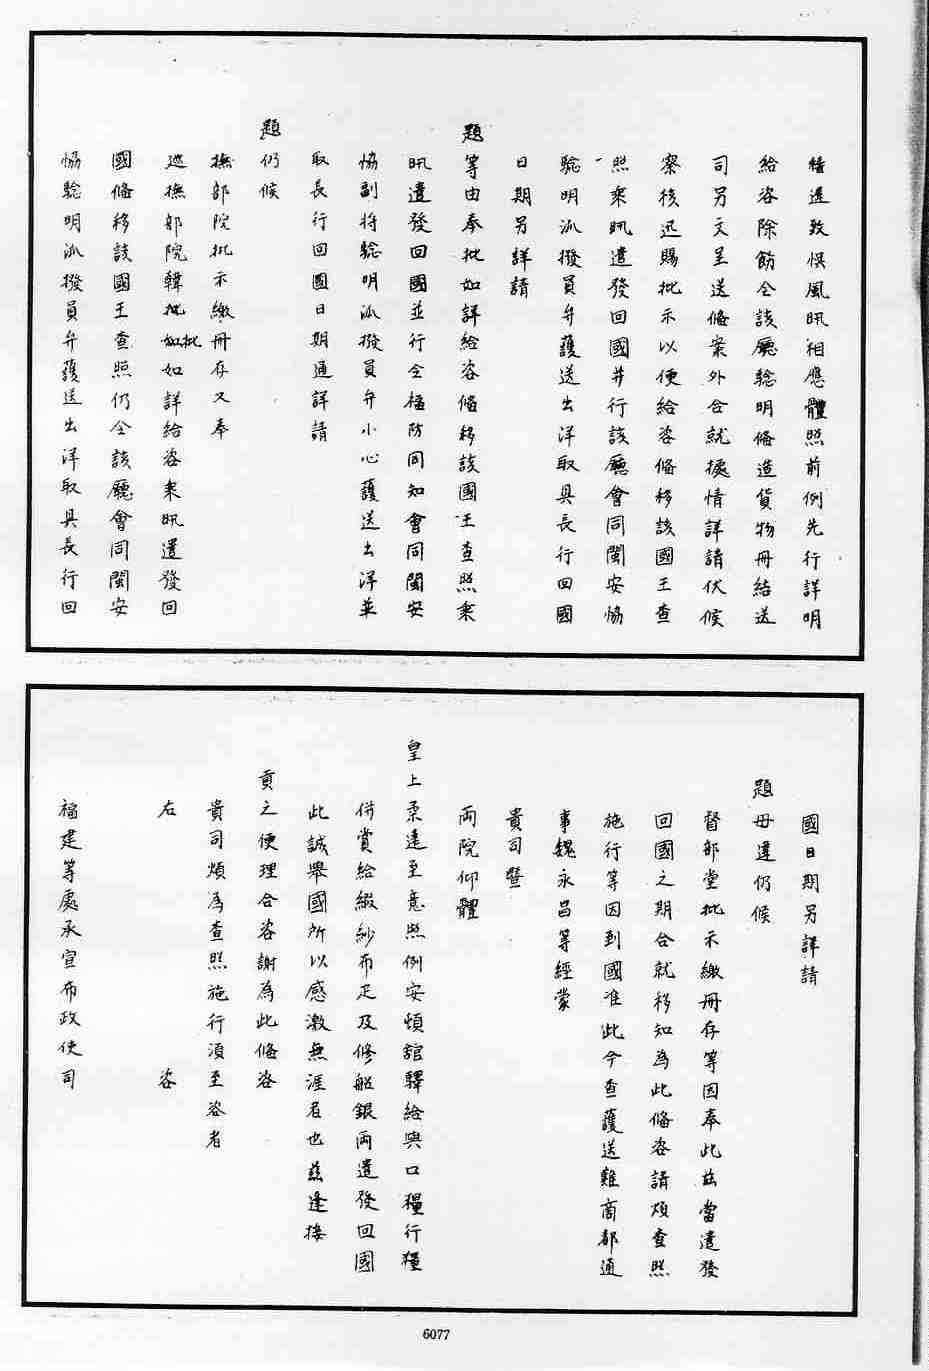 稽遲致悞風帆相應體照前例先行詳明
給咨除飭令該廳驗明俻造貨物冊結送
司另文呈送俻案外合就據情詳請伏候
察核迅賜批示以便給咨俻移該國王查
照乘帆遣發回國并行該廳會同閩安恊
驗明沠撥員弁護送出洋取具長行回國
日期另詳請
題等由奉批如詳給咨俻移該國王查照乘
帆遣發回國並行令福防同知會同閩安
恊副将驗明沠撥員弁小心護送出洋並
取長行回國日期通詳請
題仍候
撫部院批示繳冊存又奉
巡撫部院韓批如批如詳給咨乘帆遣發回
國俻移該國王查照仍令該廳會同閩安
恊驗明沠撥員弁護送出洋取具長行回
國日期另詳請
題毋違仍候
督部堂批示繳冊存等因奉此茲當遣發
回國之期合就移知為此俻咨請煩查照
施行等因到國准此今查護送難商都通
事魏永昌等經蒙
貴司暨
両院仰體
皇上柔遠至意照例安頓舘驛給與口糧行糧
併賞給緞紗布疋及修船銀両遣發回國
此誠舉國所以感激無涯者也茲逢接
貢之便理合咨謝為此俻咨
貴司煩為查照施行湏至咨者
右　咨
福建等處承宣布政使司
6077